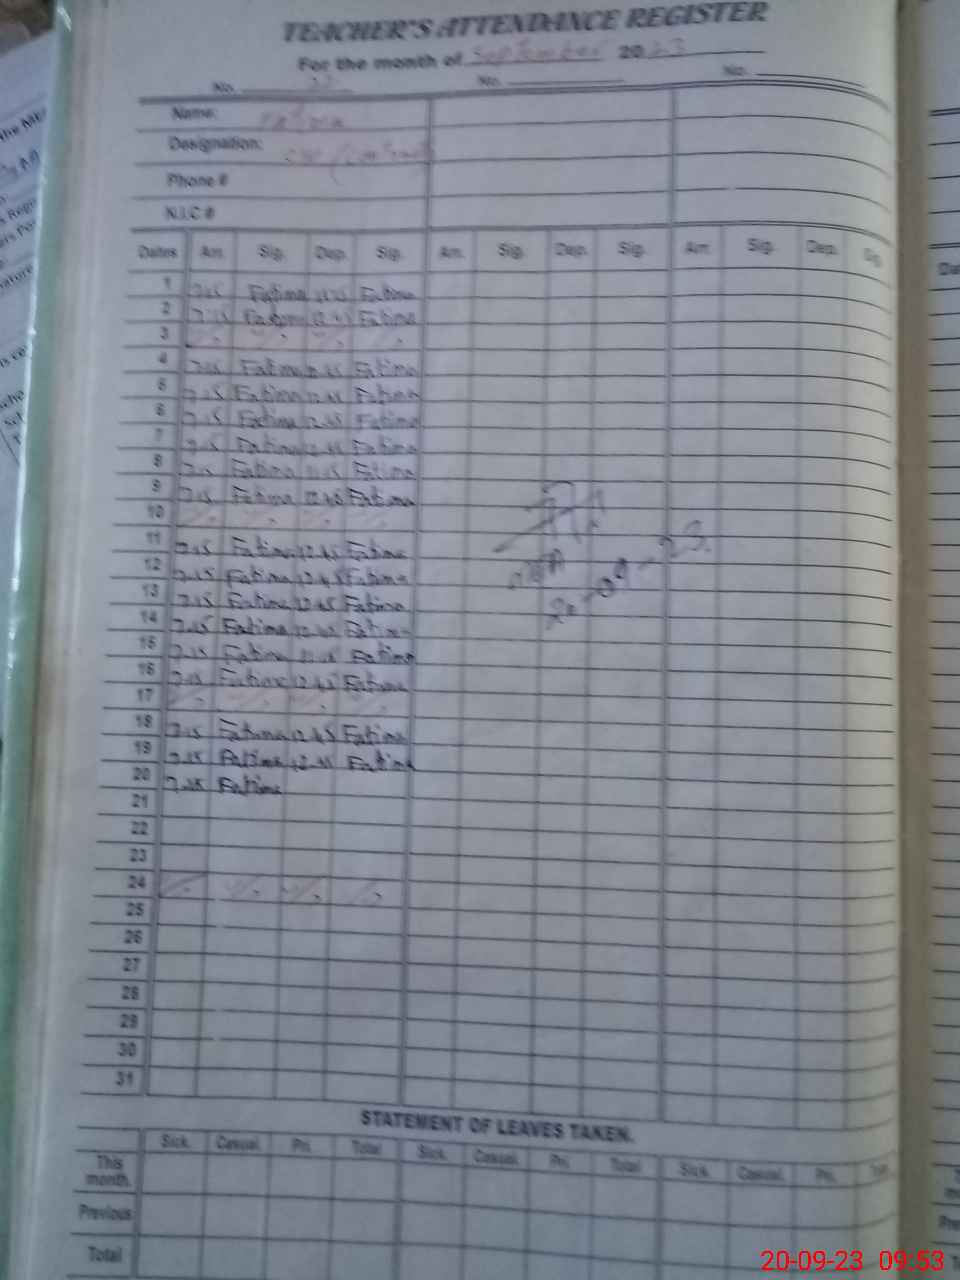 TEACHER'S ATTENDANCE REGISTER
For the month of September 2023
No. No. No.
Name: Fatima
Designation:
Phone #
N.I.C #
Dates Arr. Sig. Dep. Sig. Arr. Sig. Dep. Sig. Arr. Sig. Dep. Sig.
1 7.15 Fatima Fatima
2 7:15 Fatima 12.45 Fatima
3
4 7.15 Fatima 12.45 Fatima
5 7.15 Fatima 12.45 Fatima
6 7.15 Fatima 12.45 Fatima
7 7.15 Fatima 12.45 Fatima
8 Fatima 11.15 Fatima
9 7.15 Fatima 12.45 Fatima
10
11 7.15 Fatima 12.45 Fatima
12 7.15 Fatima 12.45 Fatima
13 7.15 Fatima 12.45 Fatima
14 7.15 Fatima 12.45 Fatima
15 7.15 Fatima 11.15 Fatima
16 7.15 Fatima 12.45 Fatima
17
18 7.15 Fatima 12.45 Fatima
19 7.15 Fatima 12.45 Fatima
20 7.15 Fatima
21
22
23
24
25
26
27
28
29
30
31
20-09-23.
STATEMENT OF LEAVES TAKEN.
Sick. Casual. Pri. Total Sick. Casual. Pri. Total Sick. Casual. Pri.
This month.
Previous
Total
20-09-23 09:53